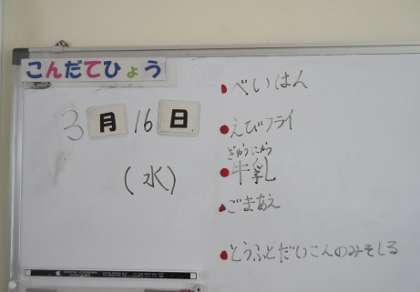 こんだてひょう
3月16日
(水)
べいはん
えびフライ
ぎゅうにゅう
牛乳
ごまあえ
とうふとだいこんのみそしる